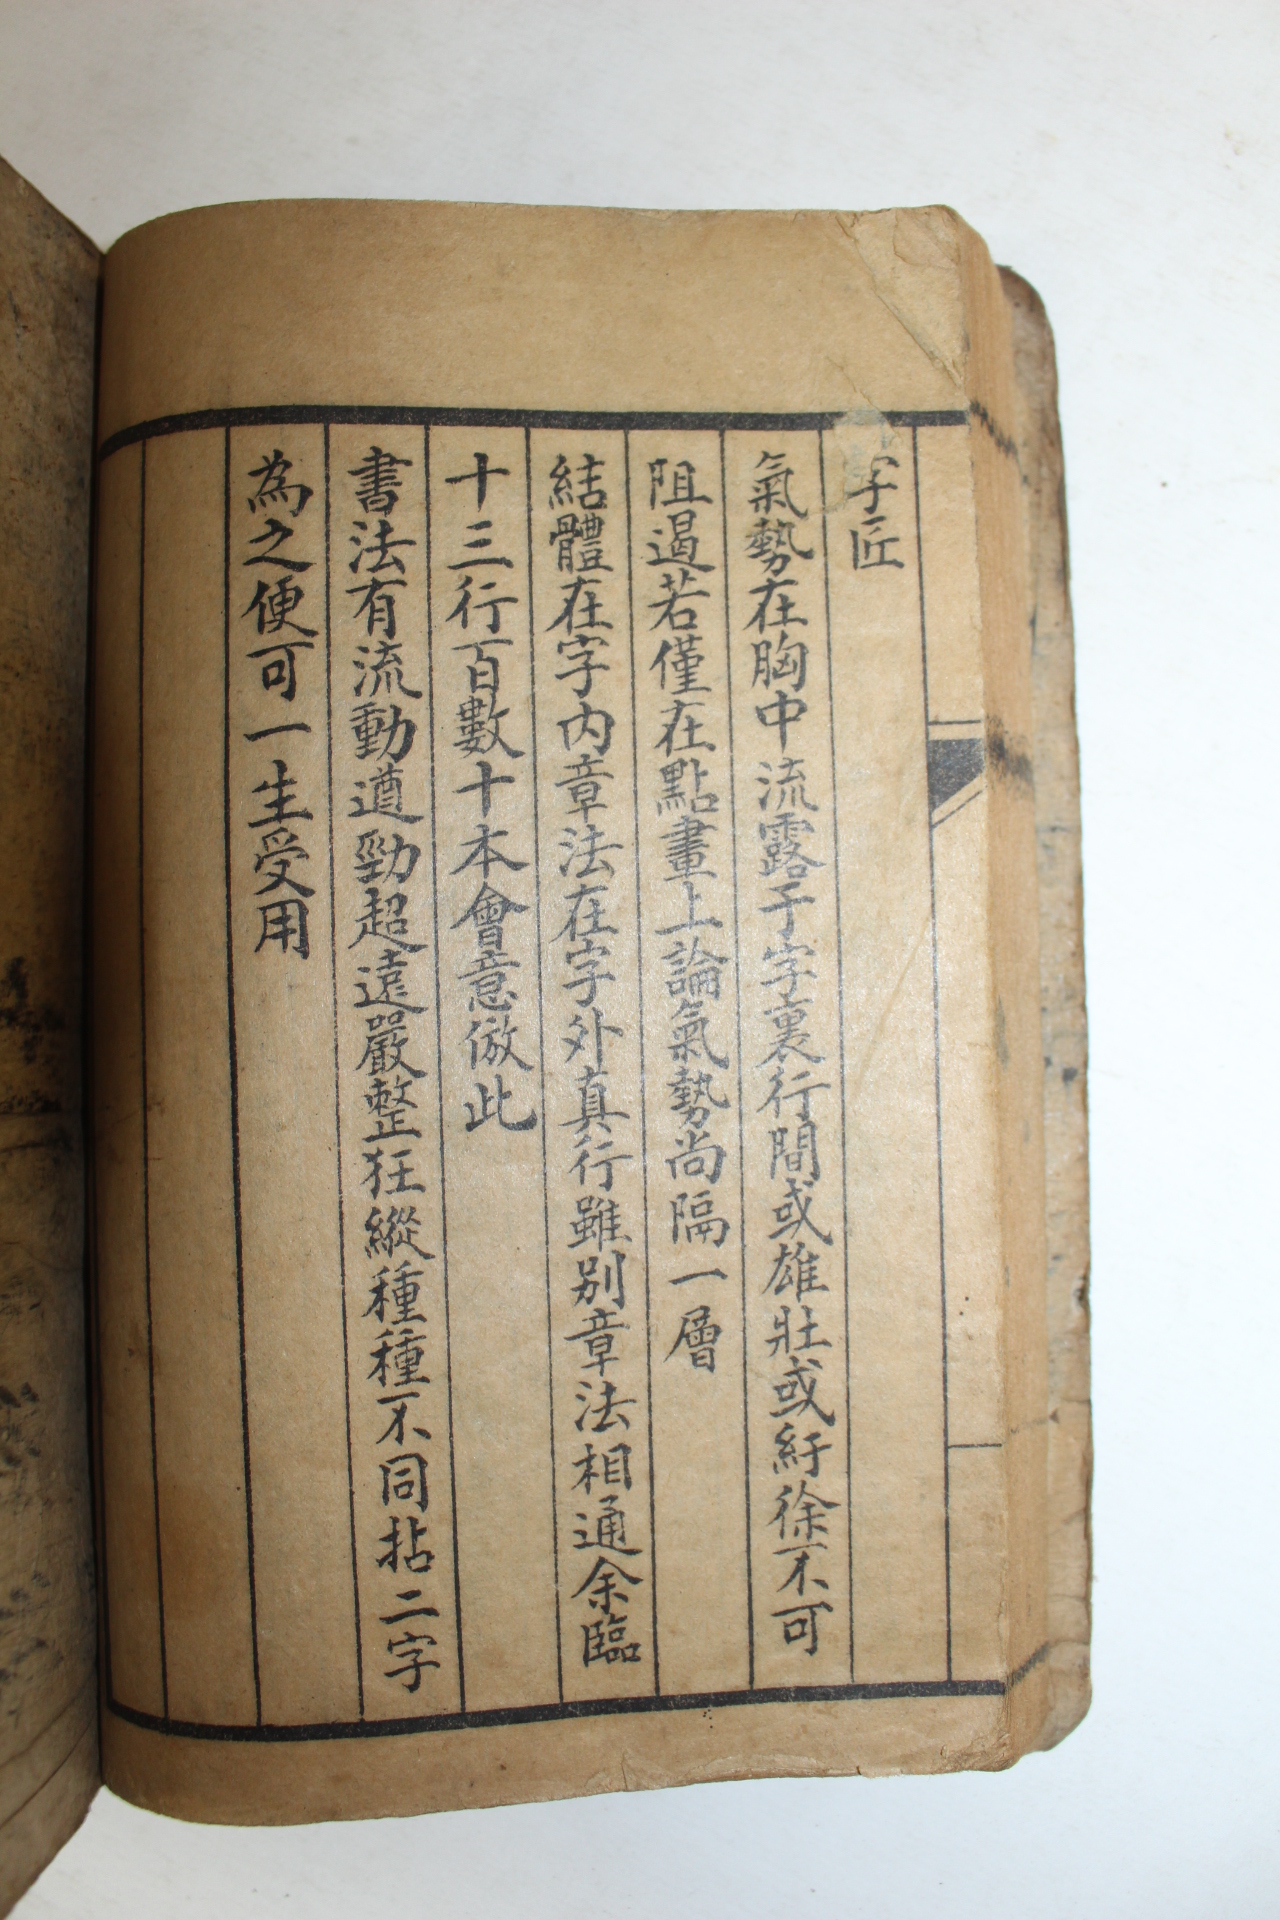 字匠
氣勢在胸中流露于字裏行間或雄壯或紆徐不可
阻遏若僅在點畫上論氣勢尚隔一層
結體在字內章法在字外真行雖別章法相通余臨
十三行百數十本會意倣此
書法有流動遒勁超遠嚴整狂縱種種不同拈二字
為之便可一生受用